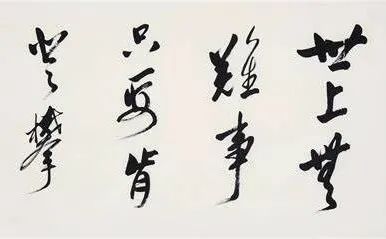 世上無
難事
只要肯
登攀